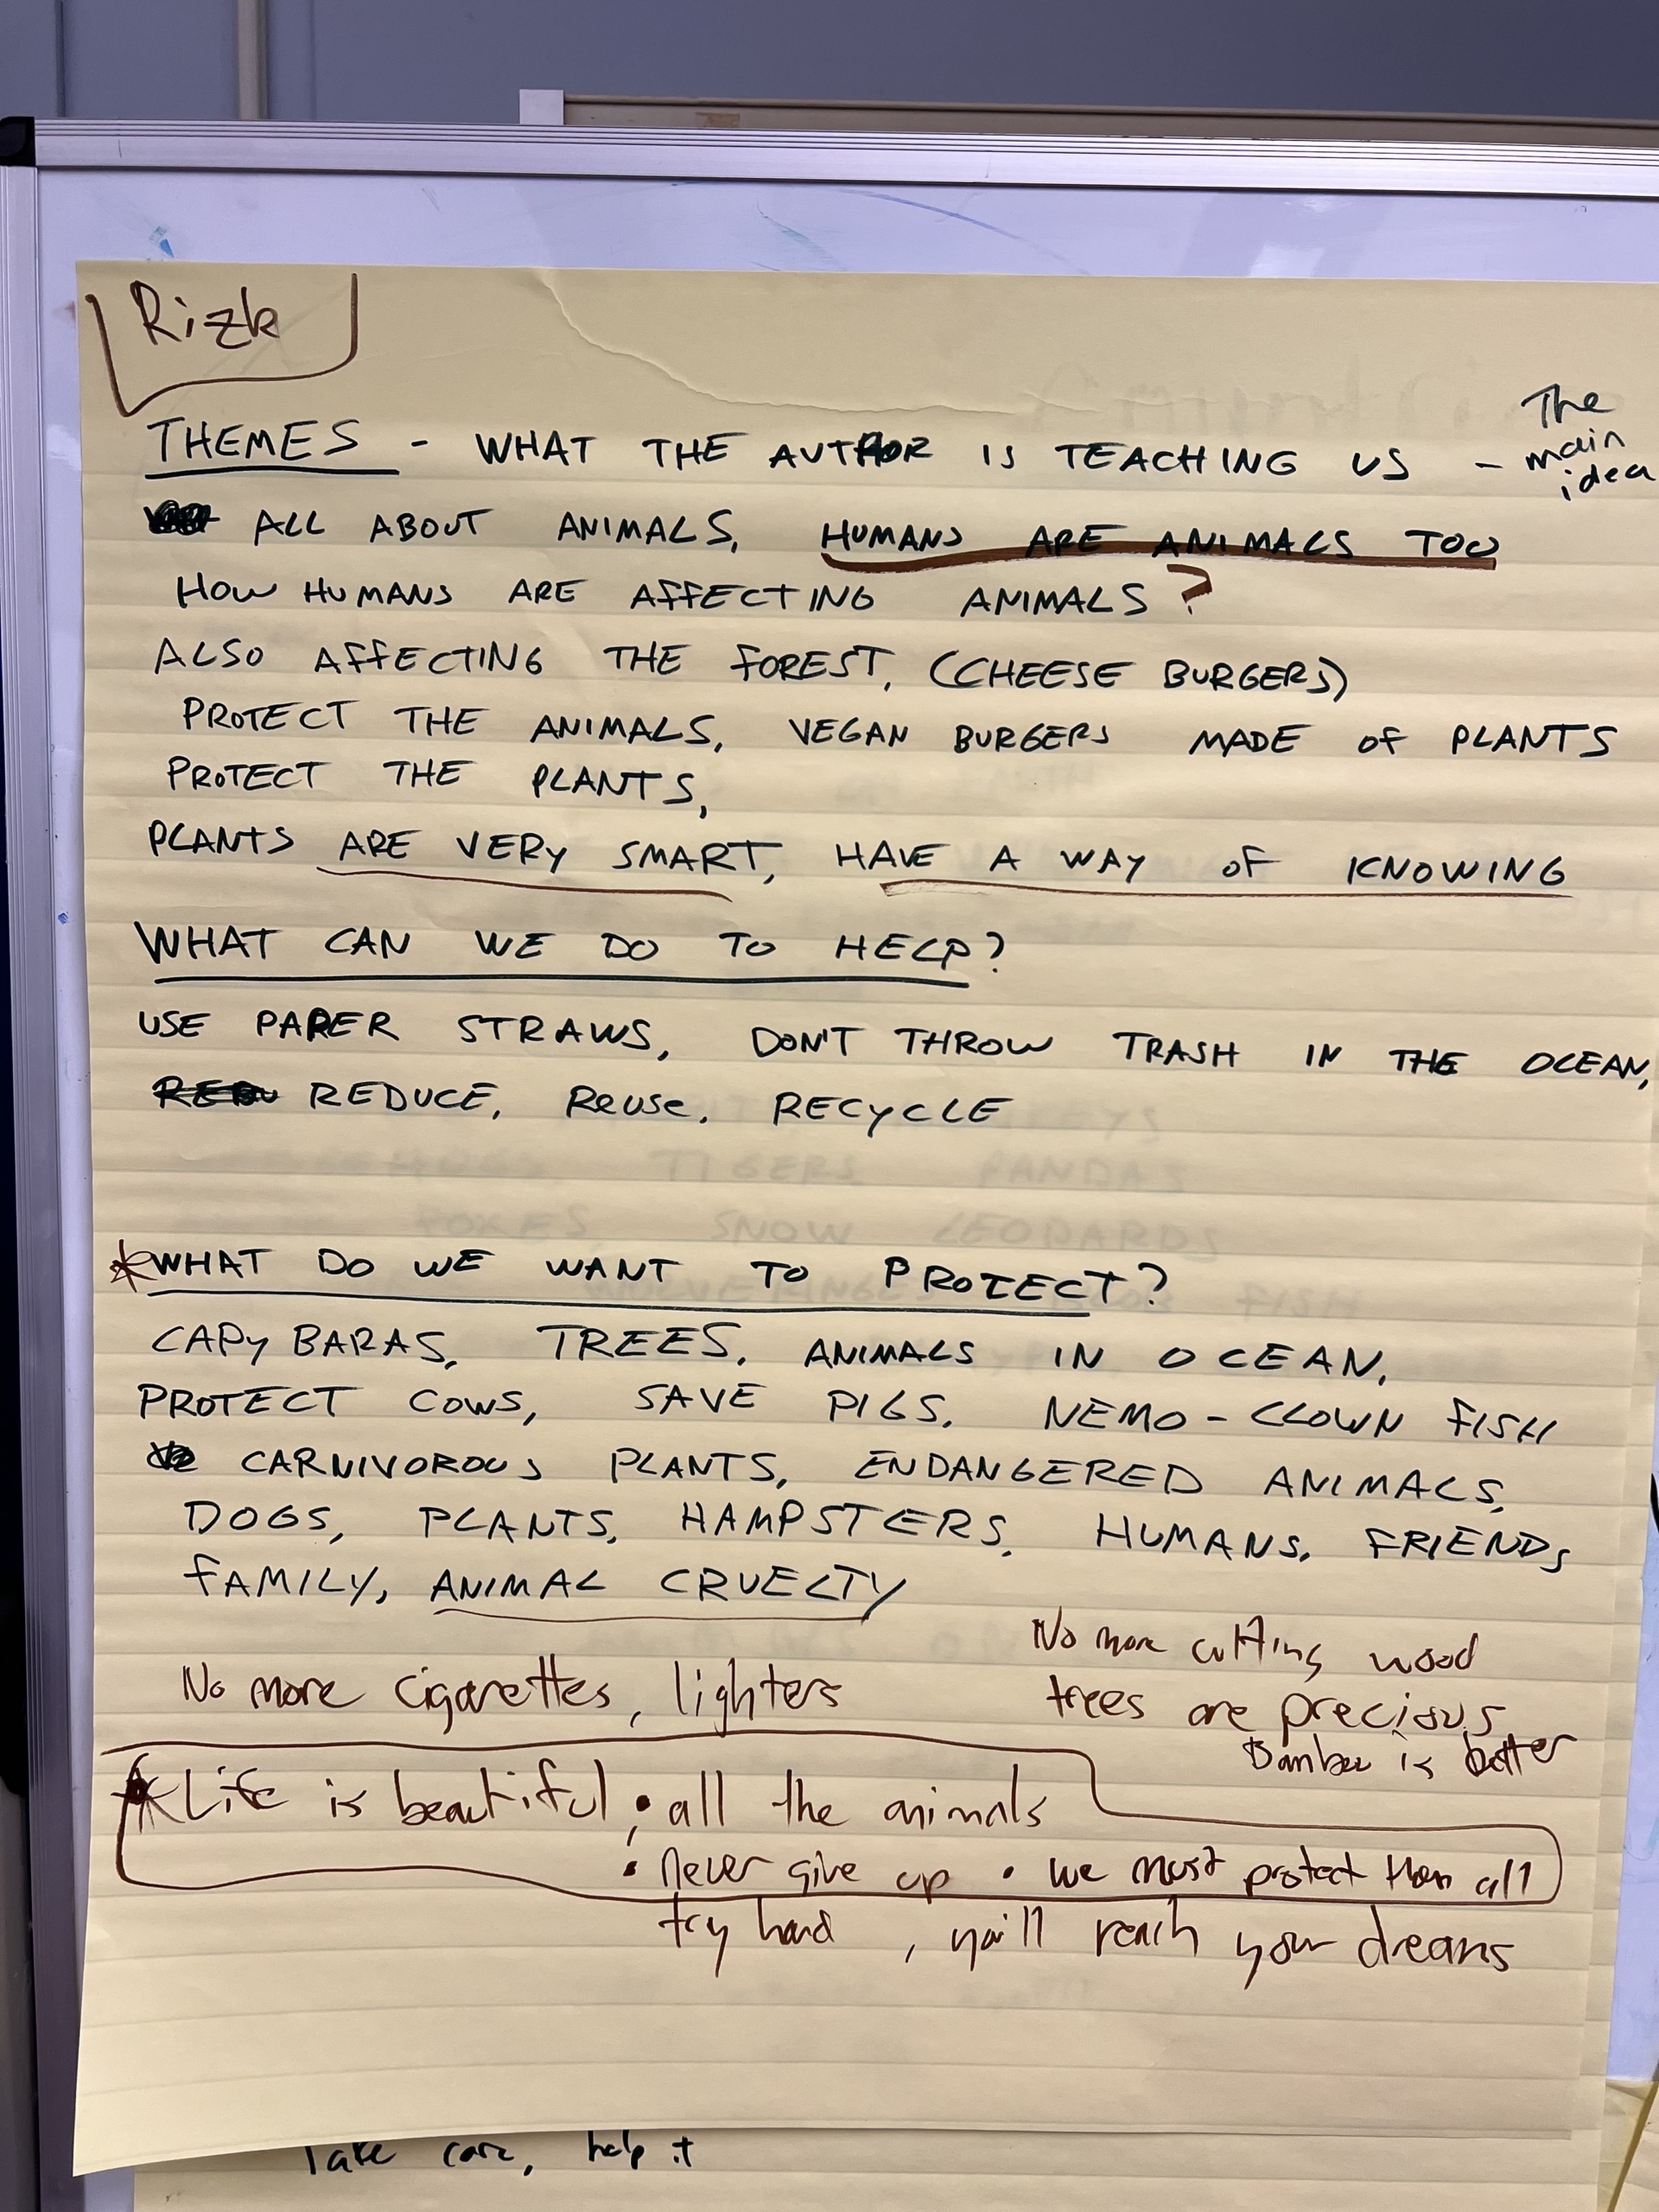 Rizk
THEMES - WHAT THE AUTHOR IS TEACHING US - The main idea
ALL ABOUT ANIMALS, HUMANS ARE ANIMALS TOO
HOW HUMANS ARE AFFECTING ANIMALS?
ALSO AFFECTING THE FOREST, (CHEESE BURGERS)
PROTECT THE ANIMALS, VEGAN BURGERS MADE OF PLANTS
PROTECT THE PLANTS,
PLANTS ARE VERY SMART, HAVE A WAY OF KNOWING
WHAT CAN WE DO TO HELP?
USE PAPER STRAWS, DON'T THROW TRASH IN THE OCEAN,
REDUCE, ReUSe, RECYCLE
*WHAT DO WE WANT TO PROTECT?
CAPYBARAS, TREES, ANIMALS IN OCEAN,
PROTECT COWS, SAVE PIGS, NEMO - CLOWN FISH
CARNIVOROUS PLANTS, ENDANGERED ANIMALS,
DOGS, PLANTS, HAMPSTERS, HUMANS, FRIENDS
FAMILY, ANIMAL CRUELTY
No more cutting wood
No more cigarettes, lighters
trees are precious
Bamboo is better
*Life is beautiful; • all the animals
• never give up • we must protect them all
try hard, you'll reach your dreams
Take care, help it